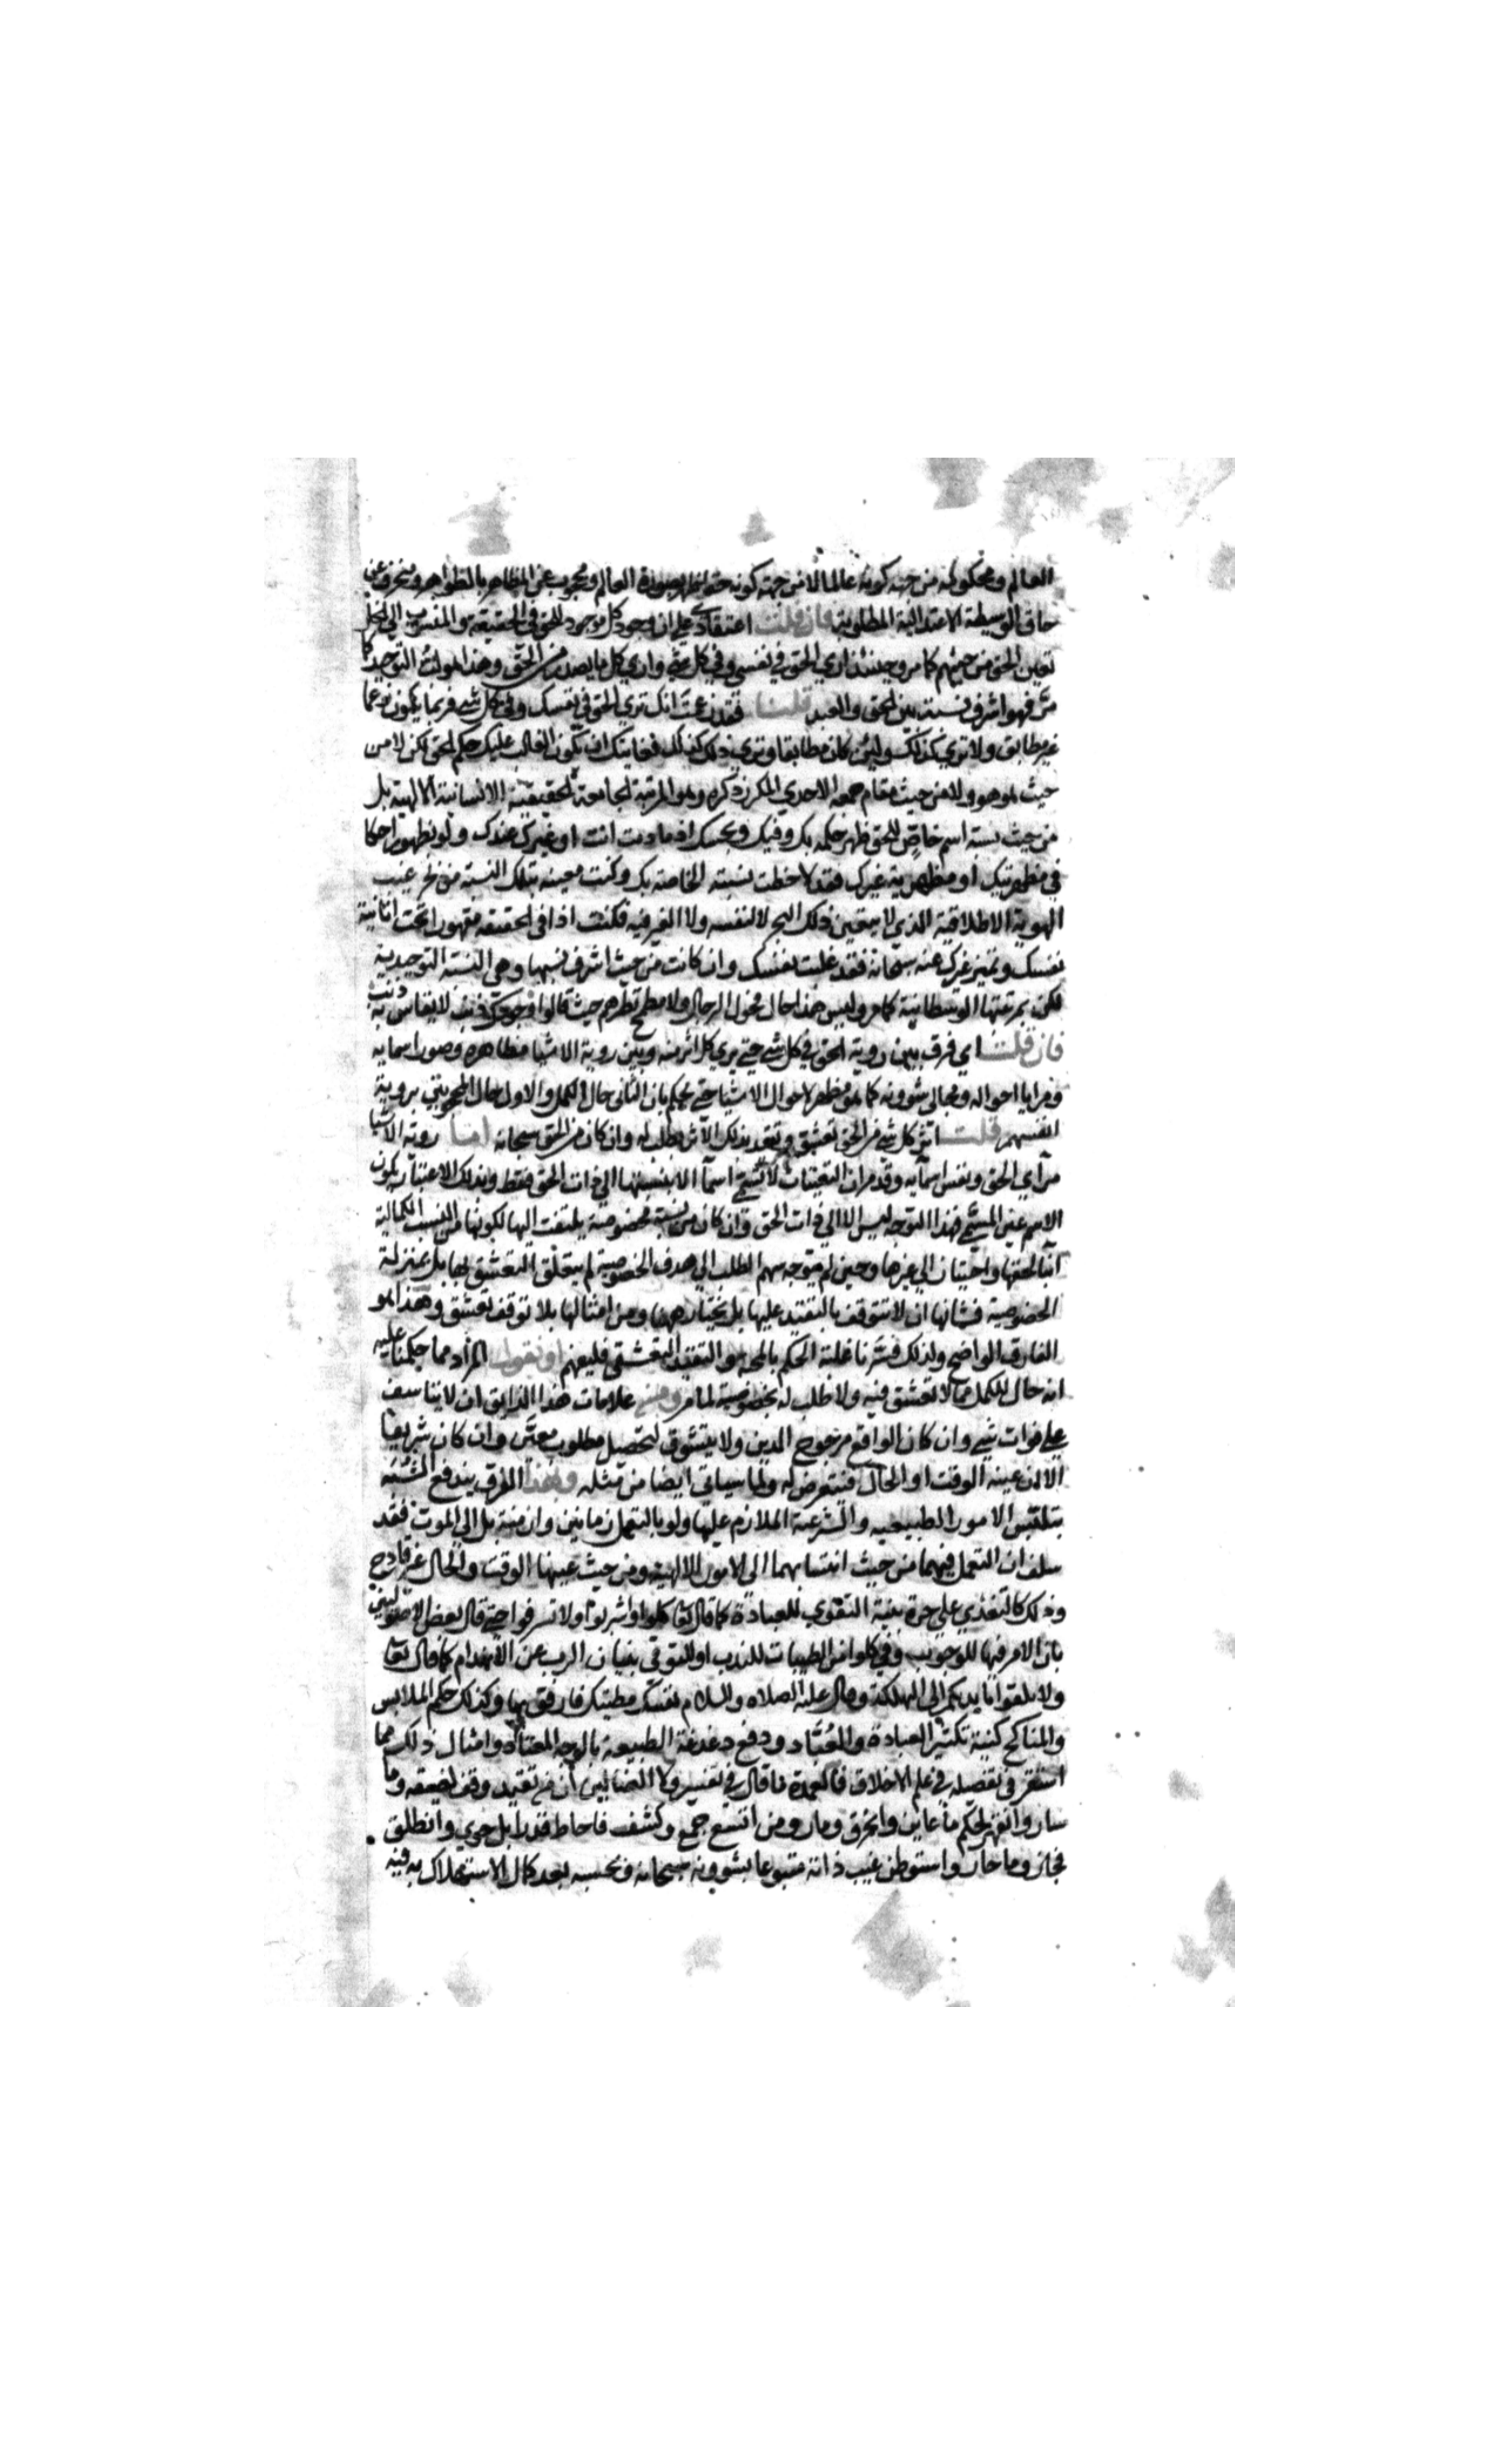 العالم ومحكوم له من جهة كونه عالما لا من جهة كونه حقا ظهر بصورة العالم ومحجوب عن المظاهر بالظواهر ومنحرف عن
حاق الوسيطة الاعتدالية المطلوبة فان قلت اعتقادي على ان وجود كل موجود للحق في الحقيقة والمنسوب الى الخلق
تعين الحق من حيثهم كما مر وحينئذ ارى الحق في نفسي وفي كل شي وارى كل ما يصدر من الحق وهذا هو التوحيد كما
مر فهو اشرف نسبة بين الحق والعبد قلنا فقد زعمت انك ترى الحق في نفسك وفي كل شي فربما يكون زعما
غير مطابق ولا ترى كذلك ولئن كان مطابقا وترى ذلك كذلك فغايتك ان يكون الغالب عليك حكم الحق لكن لا من
حيث هو هو ولا من حيث مقام جمعه الاحدي المكرر ذكره وهو المرتبة الجامعة الحقيقية الانسانية الالهية بل
من حيث نسبة اسم خاص للحق ظهر حكمه بك وفيك وبحسبك اذ ما دمت انت او غيرك عندك ولو بظهور احكا
في مظهريتك او مظهرية غيرك فقد لاحظت نسبته الخاصة بك وكنت معينه بتلك النسبة من غيب
الهوية الاطلاقية الذي لا يتعين ذلك لا لنفسه ولا لغير فيه فكنت اذا في الحقيقة مقهورا تحت انانية
نفسك وتميز غيرك عنه سبحانه فقد غلبت نفسك وان كانت من حيث اشرف نسبها وهي النسبة التوحيدية
لكن بمرتبتها الوسطانية كما مر وليس هذا حال فحول الرجال ولا مطمح نظرهم حيث قالوا وجودك ذنب لا يقاس به ذنب
فان قلت اي فرق بين روية الحق في كل شي حتى يرى كل اثر منه وبين روية الاشيا مظاهره وصور اسمايه
ومرايا احواله ومجالي شوونه كما هو مظهر لاحوال الاشيا حتى يحكم بان الثاني حال الكمل والاول حال المحجوبين بروية
انفسهم قلت اثر كل شي من الحق تعشق وتقيد بذلك الاثر بطلبه وان كان من الحق سبحانه اما روية الاشيا
مرآي الحق ونفس اسمايه وقد مر ان التعينات لا تسمى اسما الا بنسبتها الى ذات الحق فقط وبذلك الاعتبار يكون
الاسم عين المسمى فهذا التوجه ليس الا الى ذات الحق وان كان من نسبة مخصوصة يلتفت اليها لكونها من النسب الكمالية
لحقتها واحتيان الى غيرها وحين لم يتوجه سهم الطلب الى هدف الخصوصية لم يتعلق التعشق بها بل بمنزلة
الخصوصية فشانها ان لا تتوقف بالتقيد عليها بل يختار منها ومن امثالها بلا توقف تعشق وهذا هو
الفارق الواضح ولذلك فسرنا غلبة الحكم بالمحبة والتقيد التعشقي فليفهم او نقول المراد مما حكمنا عليه
انه حال للكمل مما لا تعشق فيه ولا طلب له بخصوصية لما مر ومن علامات هذا الذايق ان لا يتاسف
على فوات شي وان كان الواقع مرجوح الدين ولا يتشوق لتحصيل مطلوب معين وان كان شريفا
الا ان عينه الوقت او الحال فيتعرض له ولما سياتي ايضا من مثله وبهذا الفرق يندفع الشبه
بتلبس الامور الطبيعية والشرعية الملازم عليها ولو بالتعمل زمانين وازمنة بل الى الموت فقد
سلف ان التعمل فيهما من حيث انتسابهما الى الامور الالهية ومن حيث عينها الوقت والحال غير قادح
وذلك كالتغذي على حرة بنية التقوي للعبادة كما قال تعا كلوا واشربوا ولا تسرفوا حتى قال بعض الاصوليين
بان الامر فيها للوجوب وفي كلوا من الطيبات للندب او للتوقي بنيان الرب عن الانهدام كما قال تعا
ولا تلقوا بايديكم الى التهلكة وقال عليه الصلاه والسلام نفسك مطيتك فارفق بها وكذلك حكم الملابس
والمناكح كنية تكثير العبادة والعُبَّاد ودفع دغدغة الطبيعة بالوجه المعتاد وامثال ذلك مما
استقر في تفصيله في علم الاخلاق فالعمدة ما قال في تفسير ولا الضالين ان من تقيد وقف لضيقه وما
سار وانقهر لحكم ما عاين وانخرق ومار ومن اتسع جمع وكشف فاحاط فدار بل جرى وانطلق
فجاز وما حار واستوطن غيب ذاته متبوعا بشوونه سبحانه وبحسبه بعد كمال الاستهلاك به فيه